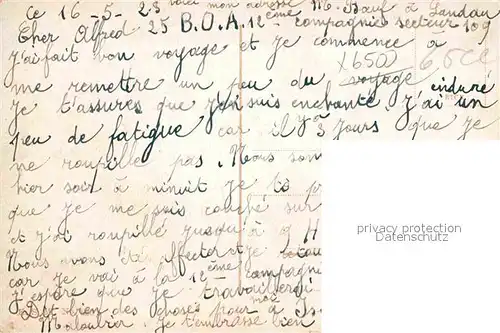 voici mon adresse M. Bœuf à Landau
Ce 16-5-23
Cher Alfred 25 B.O.A. 12ème compagnie secteur 109
j'ai fait bon voyage et je commence à
me remettre un peu du voyage enduré
X6502
je t'assures que j'en suis enchanté, j'ai un
peu de fatigue car il y a 3 jours que je
ne roupille pas. Nous som
hier soir à minuit je
que je me suis couché sur
et j'ai roupillé jusqu'à 9 H
Nous avons été affecter et je
car je vai à la 12ème compagni
j'espère que je travaillerai
Dit bien des choses pour moi à
je t'embrasse bien
privacy protection
Datenschutz